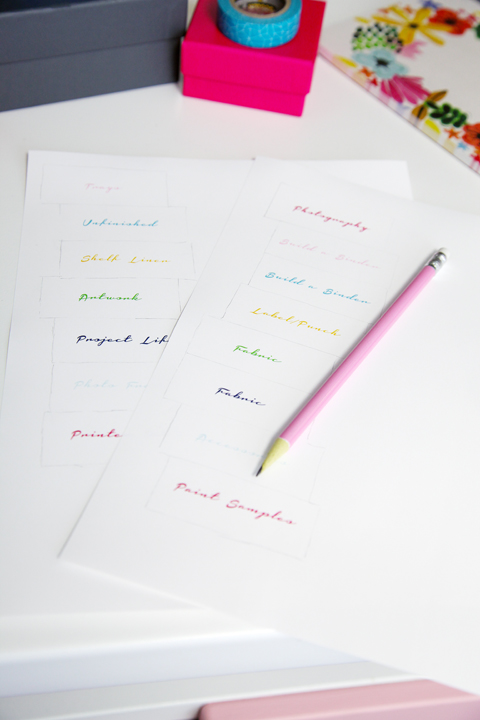 Unfinished
Shelf Liners
Artwork
Project Life
Photo
Paints
Photography
Build a Binder
Build a Binder
Label/Punch
Fabric
Fabric
Paint Samples